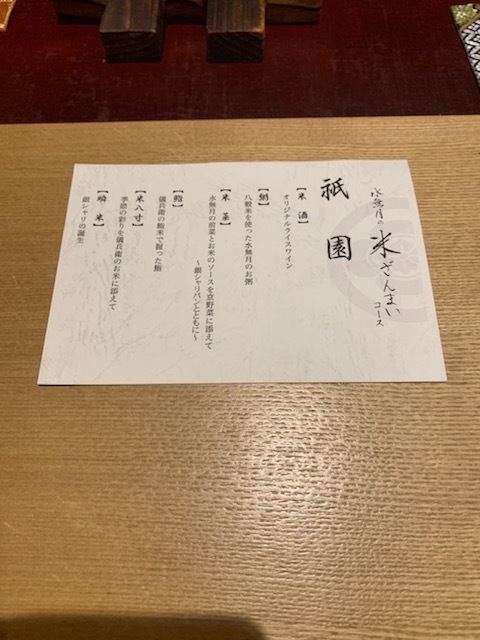 水無月の
米ざんまい
コース
祇園
【米 酒】
オリジナルライスワイン
【粥】
八穀米を使った水無月のお粥
【米 菜】
水無月の前菜とお米のソースを京野菜に添えて
～銀シャリパンとともに～
【鮨】
儀兵衛の鮨米で握った鮨
【米八寸】
季節の彩りを儀兵衛のお米に添えて
【瞬 米】
銀シャリの誕生